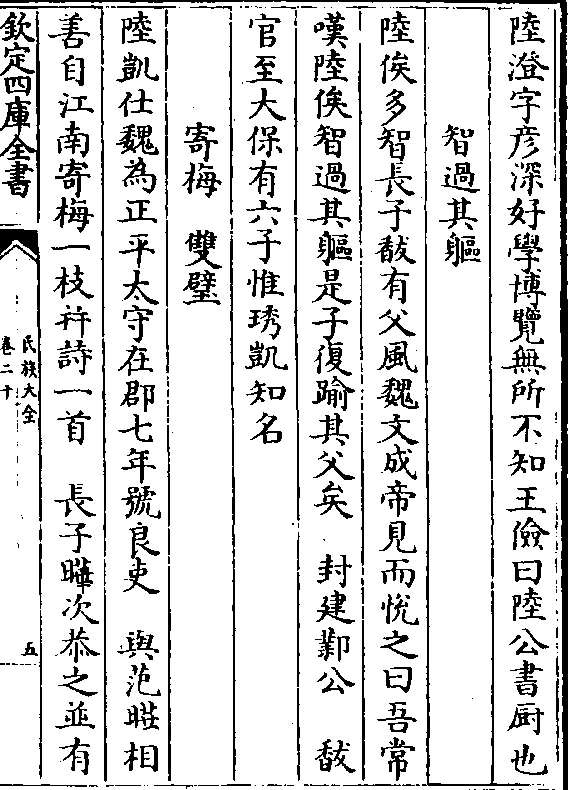 陸澄字彦深好學博覽無所不知王儉曰陸公書厨也
智過其軀
陸俟多智長子馛有父風魏文成帝見而悅之曰吾常
嘆陸俟智過其軀是子復踰其父矣 封建鄴公 馛
官至大保有六子惟琇凱知名
寄梅 雙璧
陸凱仕魏為正平太守在郡七年號良吏 與范曄相
善自江南寄梅一枝并詩一首 長子暐次恭之並有
欽定四庫全書
氏族大全
卷二十
五